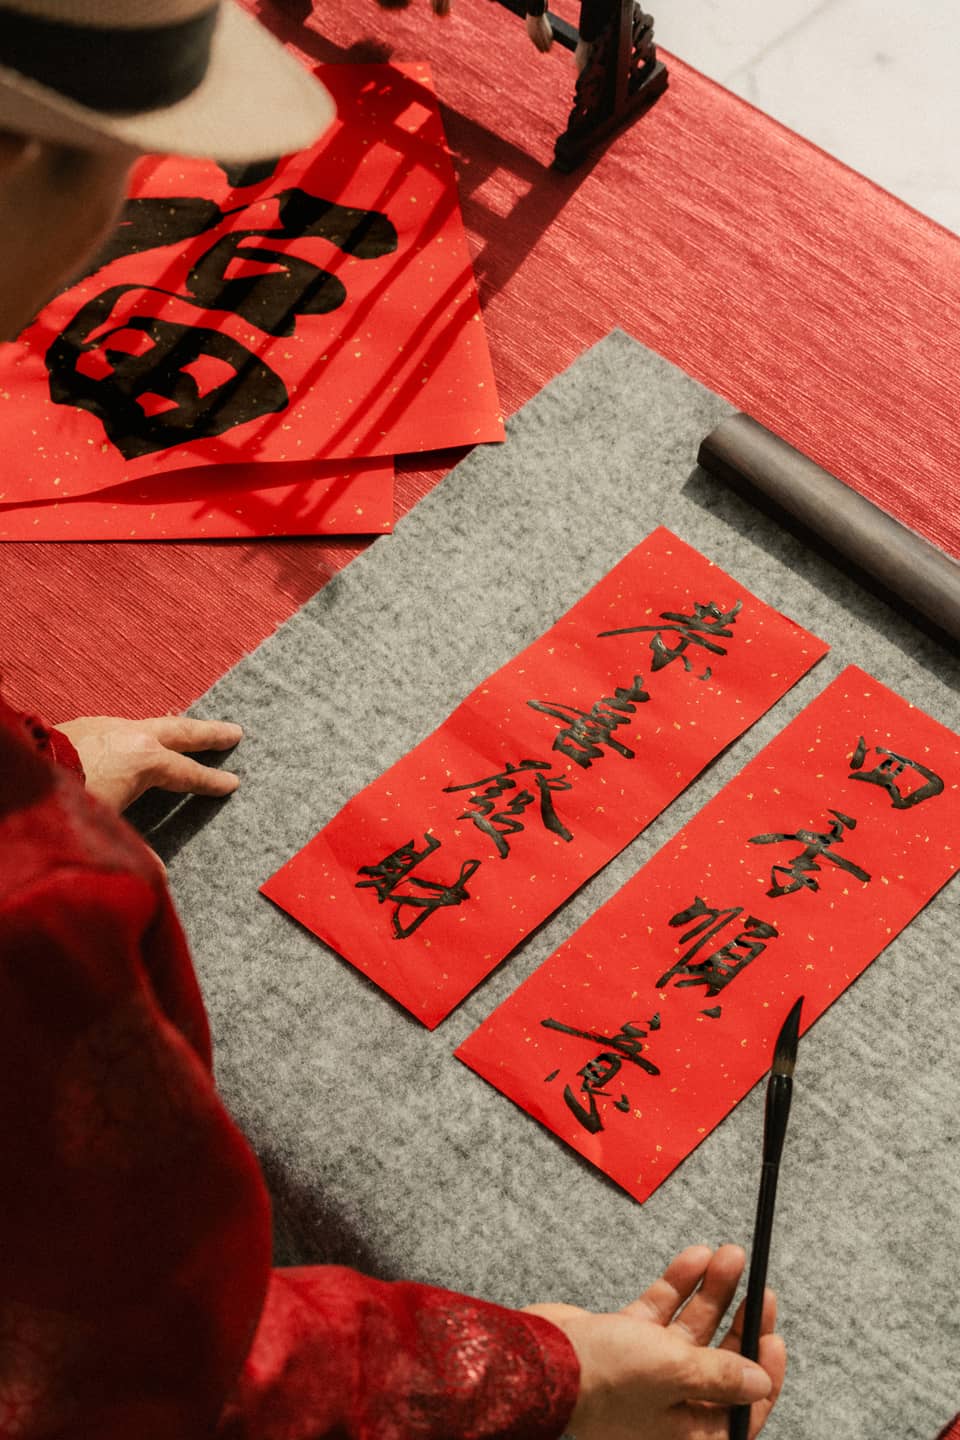 福
恭喜發財
四季順意